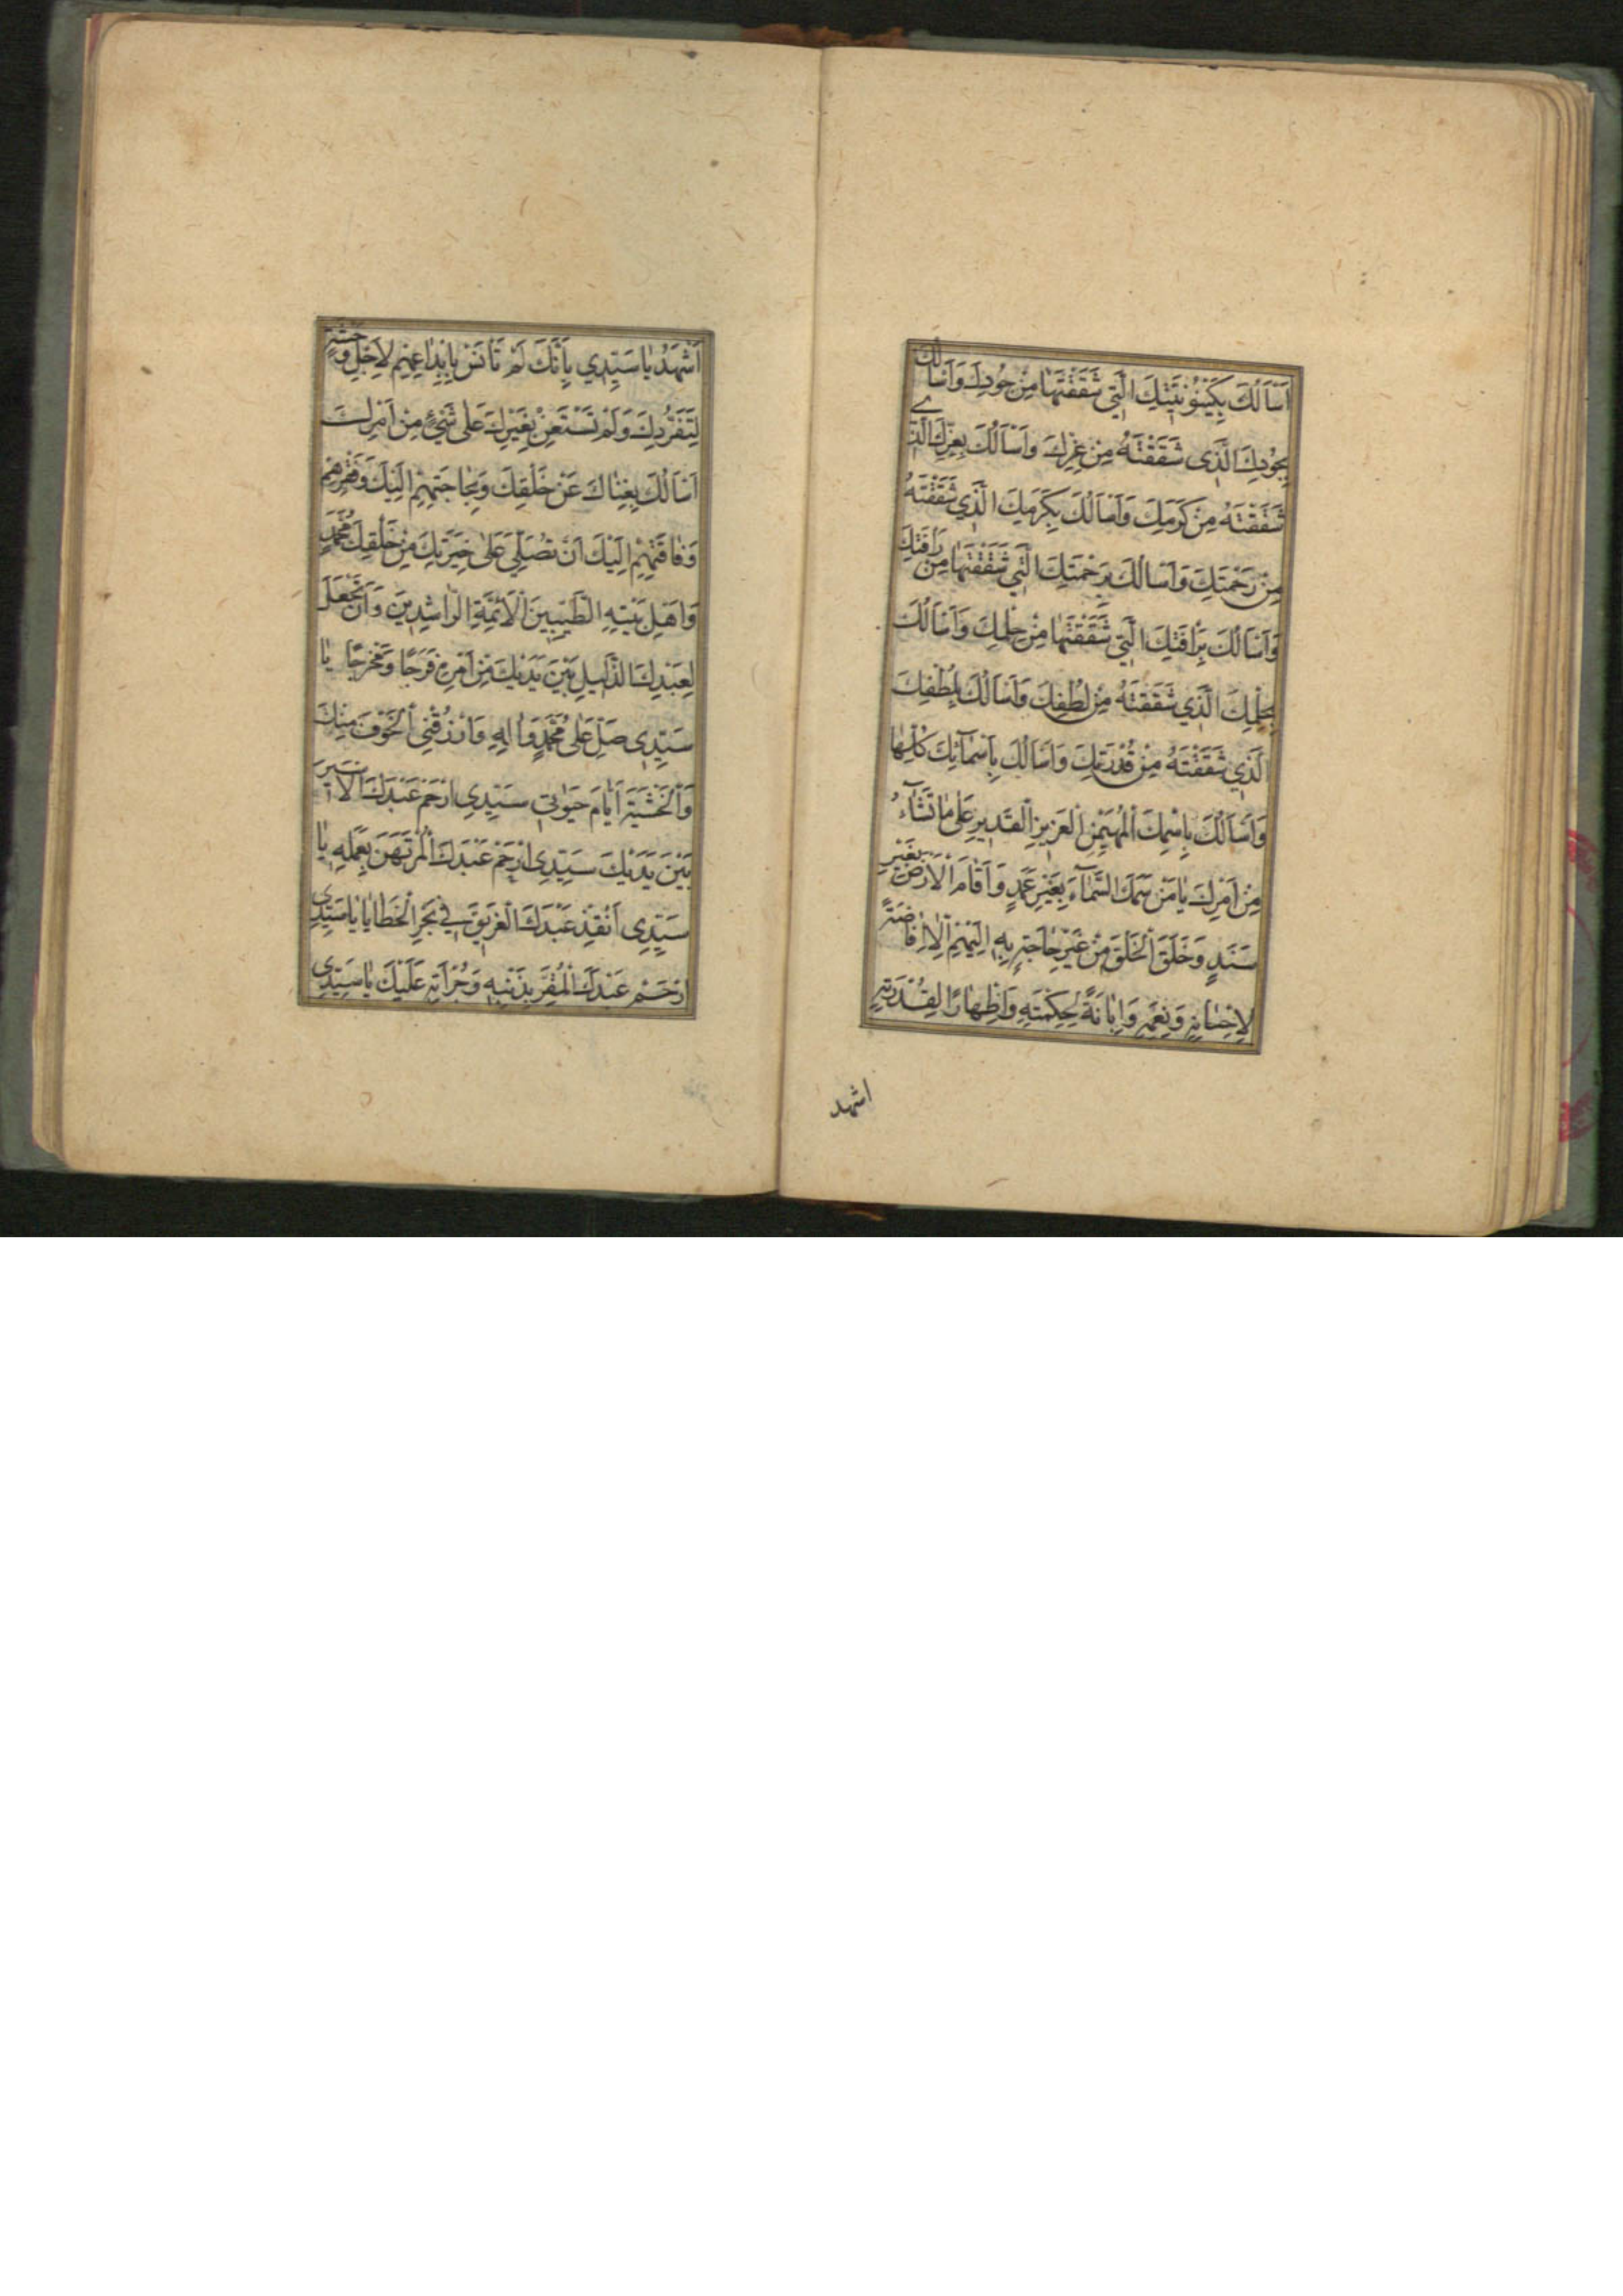 اَسْاَلُكَ بِكَيْنُونِيَّتِكَ الَّتِي شَقَقْتَهٰا مِنْ جُودِكَ وَاَسْاَلُكَ
بِجُودِكَ الَّذِى شَقَقْتَهُ مِنْ عِزِّكَ وَاَسْاَلُكَ بِعِزِّكَ الَّذِے
شَقَقْتَهُ مِنْ كَرَمِكَ وَاَسْاَلُكَ بِكَرَمِكَ الَّذِي شَقَقْتَهُ
مِنْ رَحْمَتِكَ وَاَسْاَلُكَ بِرَحْمَتِكَ الَّتِي شَقَقْتَهٰا مِنْ رَاْفَتِكَ
وَاَسْاَلُكَ بِرَاْفَتِكَ الَّتِي شَقَقْتَهٰا مِنْ حِلْمِكَ وَاَسْاَلُكَ
بِحِلْمِكَ الَّذِي شَقَقْتَهُ مِنْ لُطْفِكَ وَاَسْاَلُكَ بِلُطْفِكَ
الَّذِي شَقَقْتَهُ مِنْ قُدْرَتِكَ وَاَسْاَلُكَ بِاَسْمٰآئِكَ كُلِّهٰا
وَاَسْاَلُكَ بِاِسْمِكَ الْمُهَيْمِنِ الْعَزِيزِ الْقَدِيرِ عَلٰى مٰا تَشٰآءُ
مِنْ اَمْرِكَ يٰا مَنْ سَمَكَ السَّمٰآءَ بِغَيْرِ عَمَدٍ وَاَقٰامَ الْاَرْضَ بِغَيْرِ
سَنَدٍ وَخَلَقَ الْخَلْقَ مِنْ غَيْرِ حٰاجَةٍ بِهِ اِلَيْهِمْ اِلّٰا اِفٰاضَةً
لِاِحْسٰانِهِ وَنِعَمِهِ وَاِبٰانَةً لِحِكْمَتِهِ وَاِظْهٰارًا لِقُدْرَتِهِ
اشهد
اَشْهَدُ يٰا سَيِّدِي بِاَنَّكَ لَمْ تَاْنَسْ بِاِبْدٰاعِهِمْ لِاَجْلِ وَحْشَةٍ
لِتَفَرُّدِكَ وَلَمْ تَسْتَعِنْ بِغَيْرِكَ عَلٰى شَيْئٍ مِنْ اَمْرِكَ
اَسْاَلُكَ بِغِنٰاكَ عَنْ خَلْقِكَ وَبِحٰاجَتِهِمْ اِلَيْكَ وَفَقْرِهِمْ
وَفٰاقَتِهِمْ اِلَيْكَ اَنْ تُصَلِّيَ عَلٰى خِيَرَتِكَ مِنْ خَلْقِكَ مُحَمَّدٍ
وَاَهْلِ بَيْتِهِ الطَّيِّبِينَ الْاَئِمَّةِ الرّٰاشِدِينَ وَاَنْ تَجْعَلَ
لِعَبْدِكَ الذَّلِيلِ بَيْنَ يَدَيْكَ مِنْ اَمْرِهِ فَرَجًا وَمَخْرَجًا يٰا
سَيِّدِى صَلِّ عَلٰى مُحَمَّدٍ وَاٰلِهِ وَارْزُقْنِي الْخَوْفَ مِنْكَ
وَالْخَشْيَةَ اَيّٰامَ حَيٰوتِي سَيِّدِي ارْحَمْ عَبْدَكَ الْاَسِيرَ
بَيْنَ يَدَيْكَ سَيِّدِى ارْحَمْ عَبْدَكَ الْمُرْتَهَنَ بِعَمَلِهِ يٰا
سَيِّدِى اَنْقِذْ عَبْدَكَ الْغَرِيقَ فِي بَحْرِ الْخَطٰايٰا يٰا سَيِّدِى
ارْحَمْ عَبْدَكَ الْمُقِرَّ بِذَنْبِهِ وَجُرْاَتِهِ عَلَيْكَ يٰا سَيِّدِى